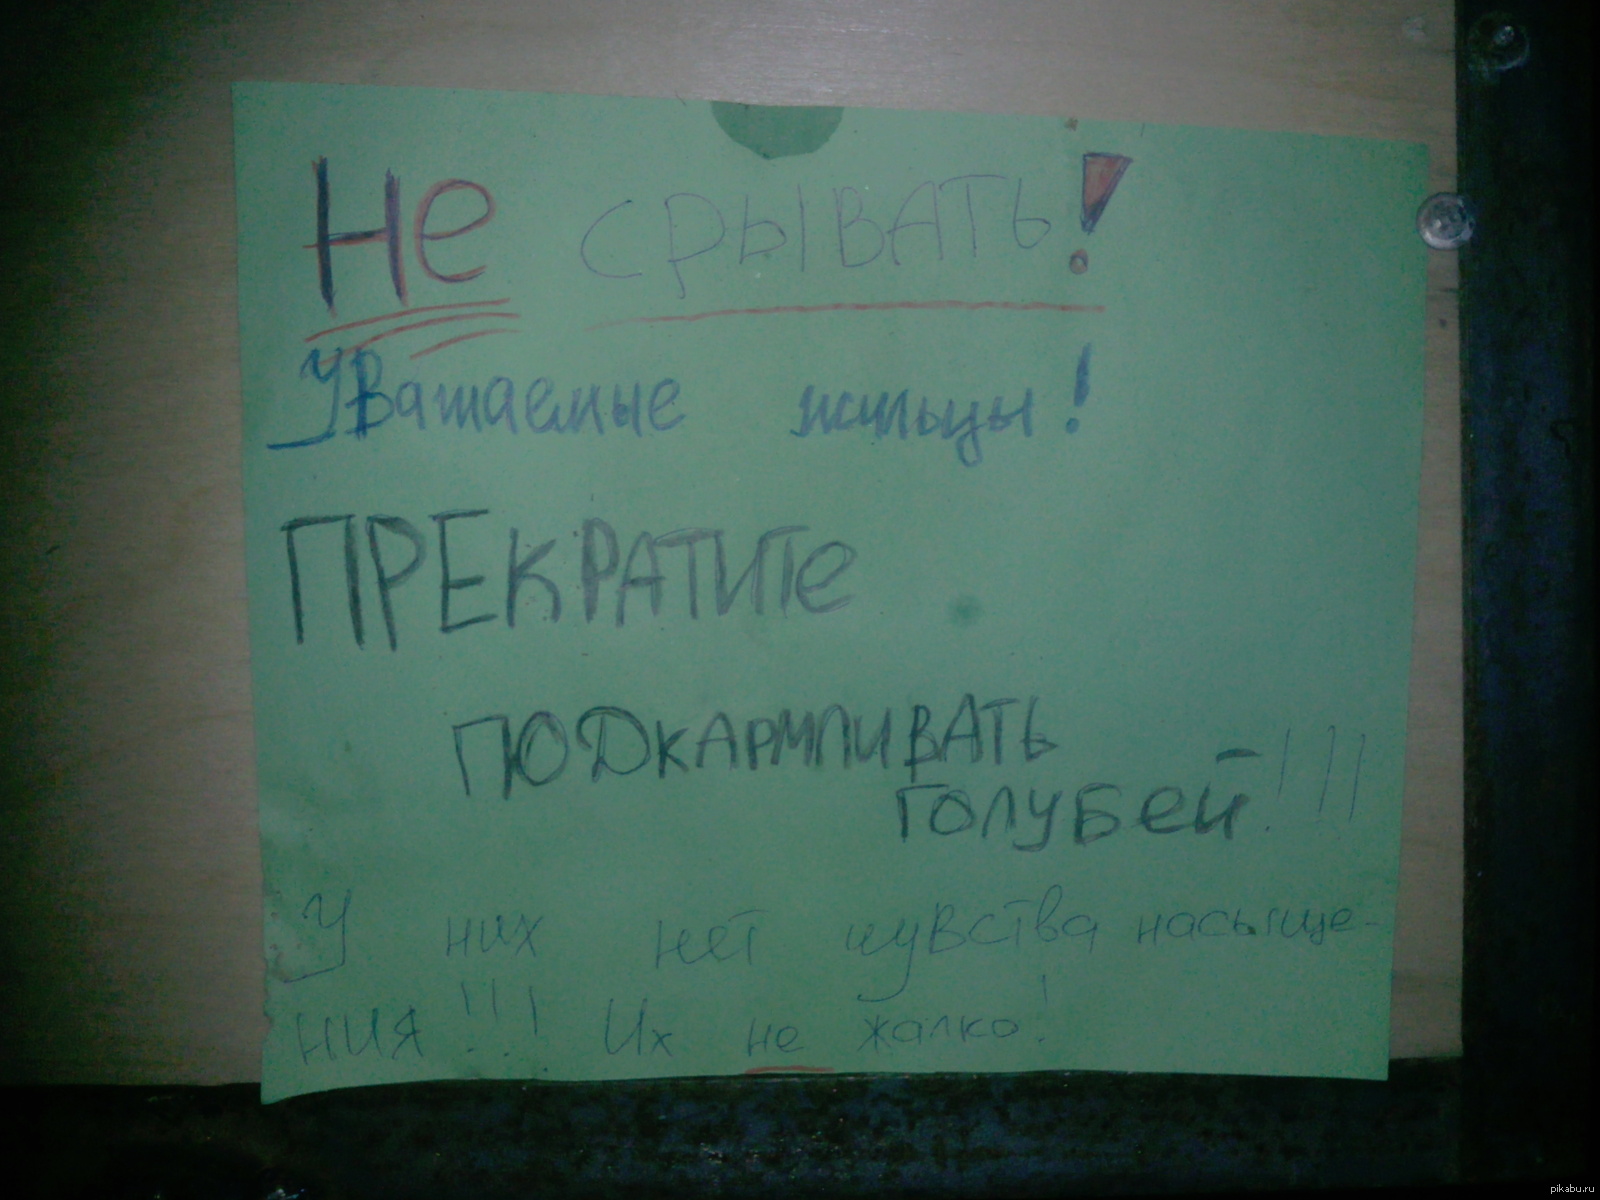 Не СРЫВАТЬ!
Уважаемые жильцы!
ПРЕКРАТИТЕ
ПОДКАРМЛИВАТЬ
ГОЛУБЕЙ!!!
У них нет чувства насыще-
ния!!! Их не жалко!
pikabu.ru